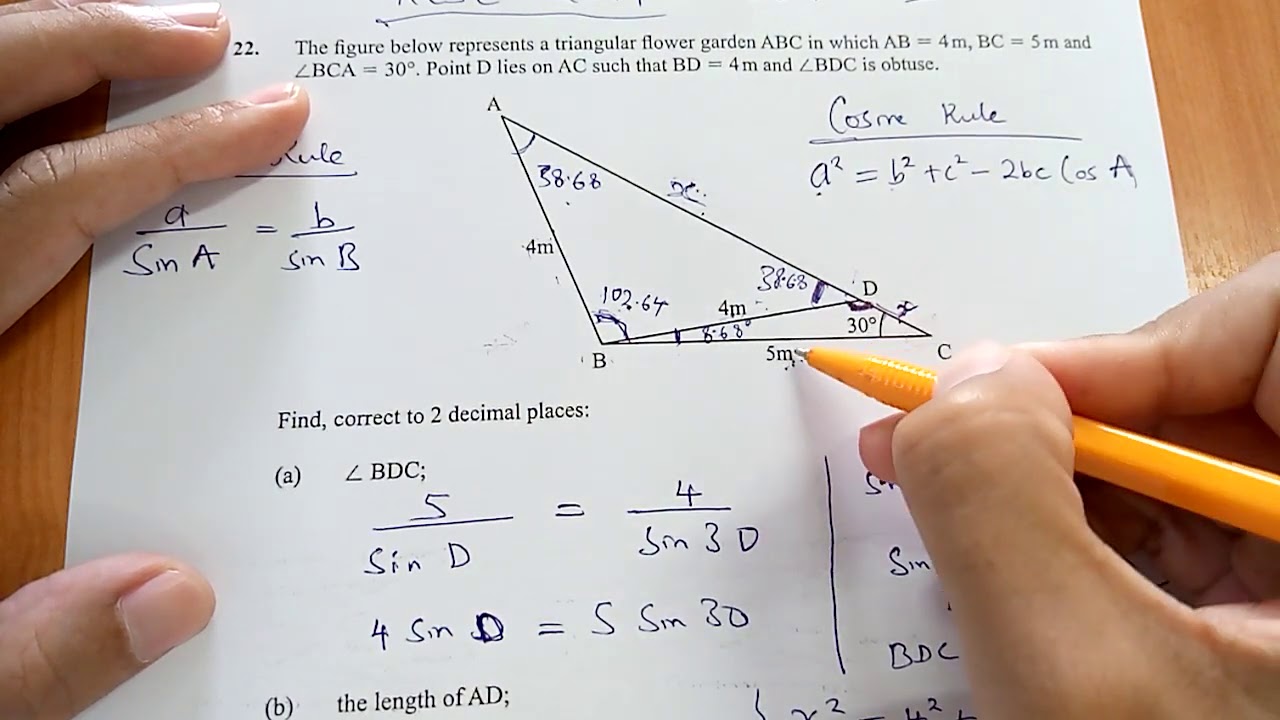 22. The figure below represents a triangular flower garden ABC in which AB = 4m, BC = 5m and
∠BCA = 30°. Point D lies on AC such that BD = 4m and ∠BDC is obtuse.
Rule
a / Sin A = b / sin B
Cosine Rule
a² = b² + c² - 2bc Cos A
A
38.68
x
4m
102.64
38.68
D
4m
x
8.68°
30°
B
5m
C
Find, correct to 2 decimal places:
(a) ∠ BDC;
5 / Sin D = 4 / Sin 30
4 Sin D = 5 Sin 30
Sin
BDC
(b) the length of AD;